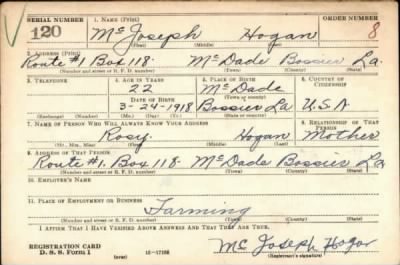 SERIAL NUMBER 1. NAME (Print) ORDER NUMBER
120 McJoseph Hogan 8
(First) (Middle) (Last)
2. ADDRESS (Print)
Route #1 Box 118. McDade Bossier La.
(Number and street or R. F. D. number) (Town) (County) (State)
3. TELEPHONE 4. AGE IN YEARS 5. PLACE OF BIRTH 6. COUNTRY OF CITIZENSHIP
22 McDade
DATE OF BIRTH (Town or county)
3-24-1918 Bossier La U.S.A
(Mo.) (Day) (Yr.) (State or country)
7. NAME OF PERSON WHO WILL ALWAYS KNOW YOUR ADDRESS 8. RELATIONSHIP OF THAT PERSON
Rosy Hogan Mother
(Mr., Mrs., Miss) (First) (Middle) (Last)
9. ADDRESS OF THAT PERSON
Route #1. Box 118 McDade Bossier La
(Number and street or R. F. D. number) (Town) (County) (State)
10. EMPLOYER'S NAME
11. PLACE OF EMPLOYMENT OR BUSINESS
Farming
(Number and street or R. F. D. number) (Town) (County) (State)
I AFFIRM THAT I HAVE VERIFIED ABOVE ANSWERS AND THAT THEY ARE TRUE.
REGISTRATION CARD
D. S. S. Form 1 (over) Mc Joseph Hogan
(Registrant's signature)